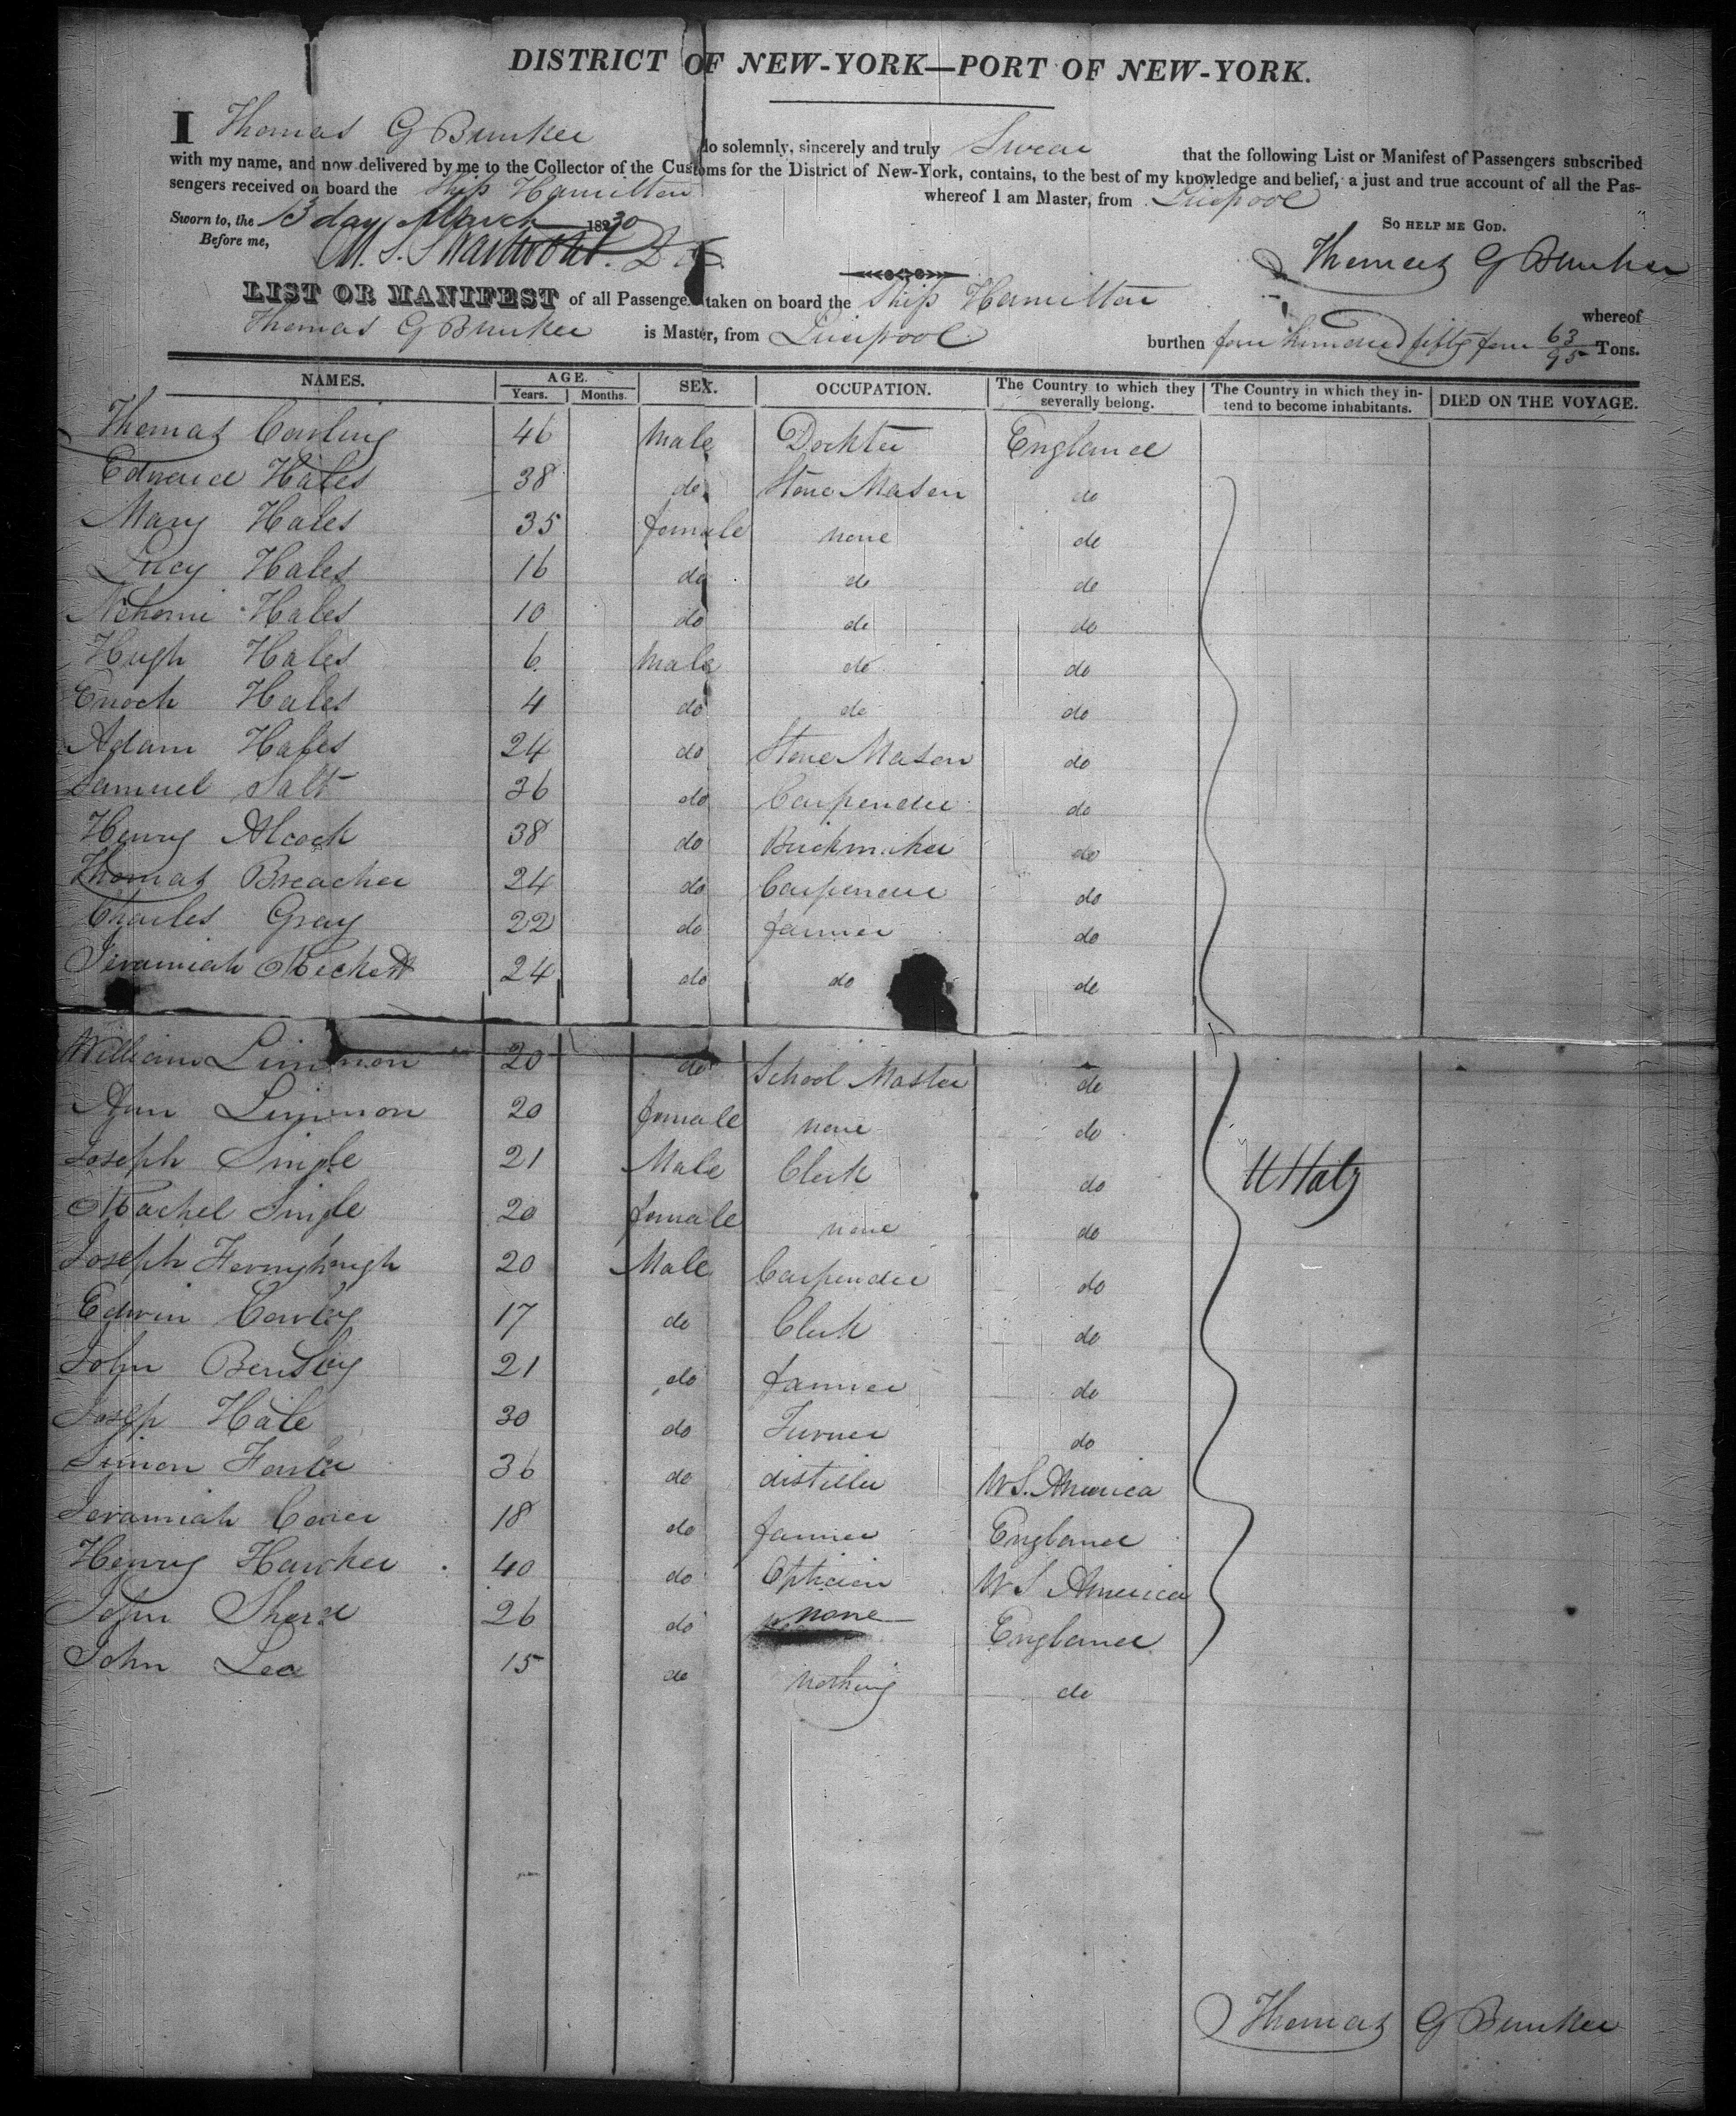 DISTRICT OF NEW-YORK—PORT OF NEW-YORK.
I Thomas G Bunker do solemnly, sincerely and truly Swear that the following List or Manifest of Passengers subscribed
with my name, and now delivered by me to the Collector of the Customs for the District of New-York, contains, to the best of my knowledge and belief, a just and true account of all the Pas-
sengers received on board the Ship Hamilton whereof I am Master, from Liverpool
Sworn to, the 13 day March 1830 So help me God.
Before me, Thomas G Bunker
LIST OR MANIFEST of all Passengers taken on board the Ship Hamilton whereof
Thomas G Bunker is Master, from Liverpool burthen four hundred fifty four 63/95 Tons.
NAMES. AGE. Years. Months. SEX. OCCUPATION. The Country to which they severally belong. The Country in which they intend to become inhabitants. DIED ON THE VOYAGE.
Thomas Cowling 46 Male Dockter England
Edward Hales 38 do Stone Mason do
Mary Hales 35 female none do
Lucy Hales 16 do do do
Nehomi Hales 10 do do do
Hugh Hales 6 Male do do
Enoch Hales 4 do do do
Adam Hales 24 do Stone Mason do
Samuel Salt 36 do Carpender do
Henry Alcock 38 do Brickmaker do
Thomas Breacher 24 do Carpender do
Charles Gray 22 do farmer do
Jeramiah Reckett 24 do do do
William Linnmon 20 do School Master do
Ann Linnmon 20 female none do
Joseph Single 21 Male Clerk do
Rachel Single 20 female none do
Joseph Fernyhough 20 Male Carpender do
Edwin Cowley 17 do Clerk do
John Bensley 21 do farmer do
Josep Hale 30 do Turner do
Simon Fowler 36 do distiller U S. America
Jeramiah Carrer 18 do farmer England
Henry Hawker 40 do Optician U S America
John Sherd 26 do none England
John Lea 15 do nothing do
Thomas G Bunker